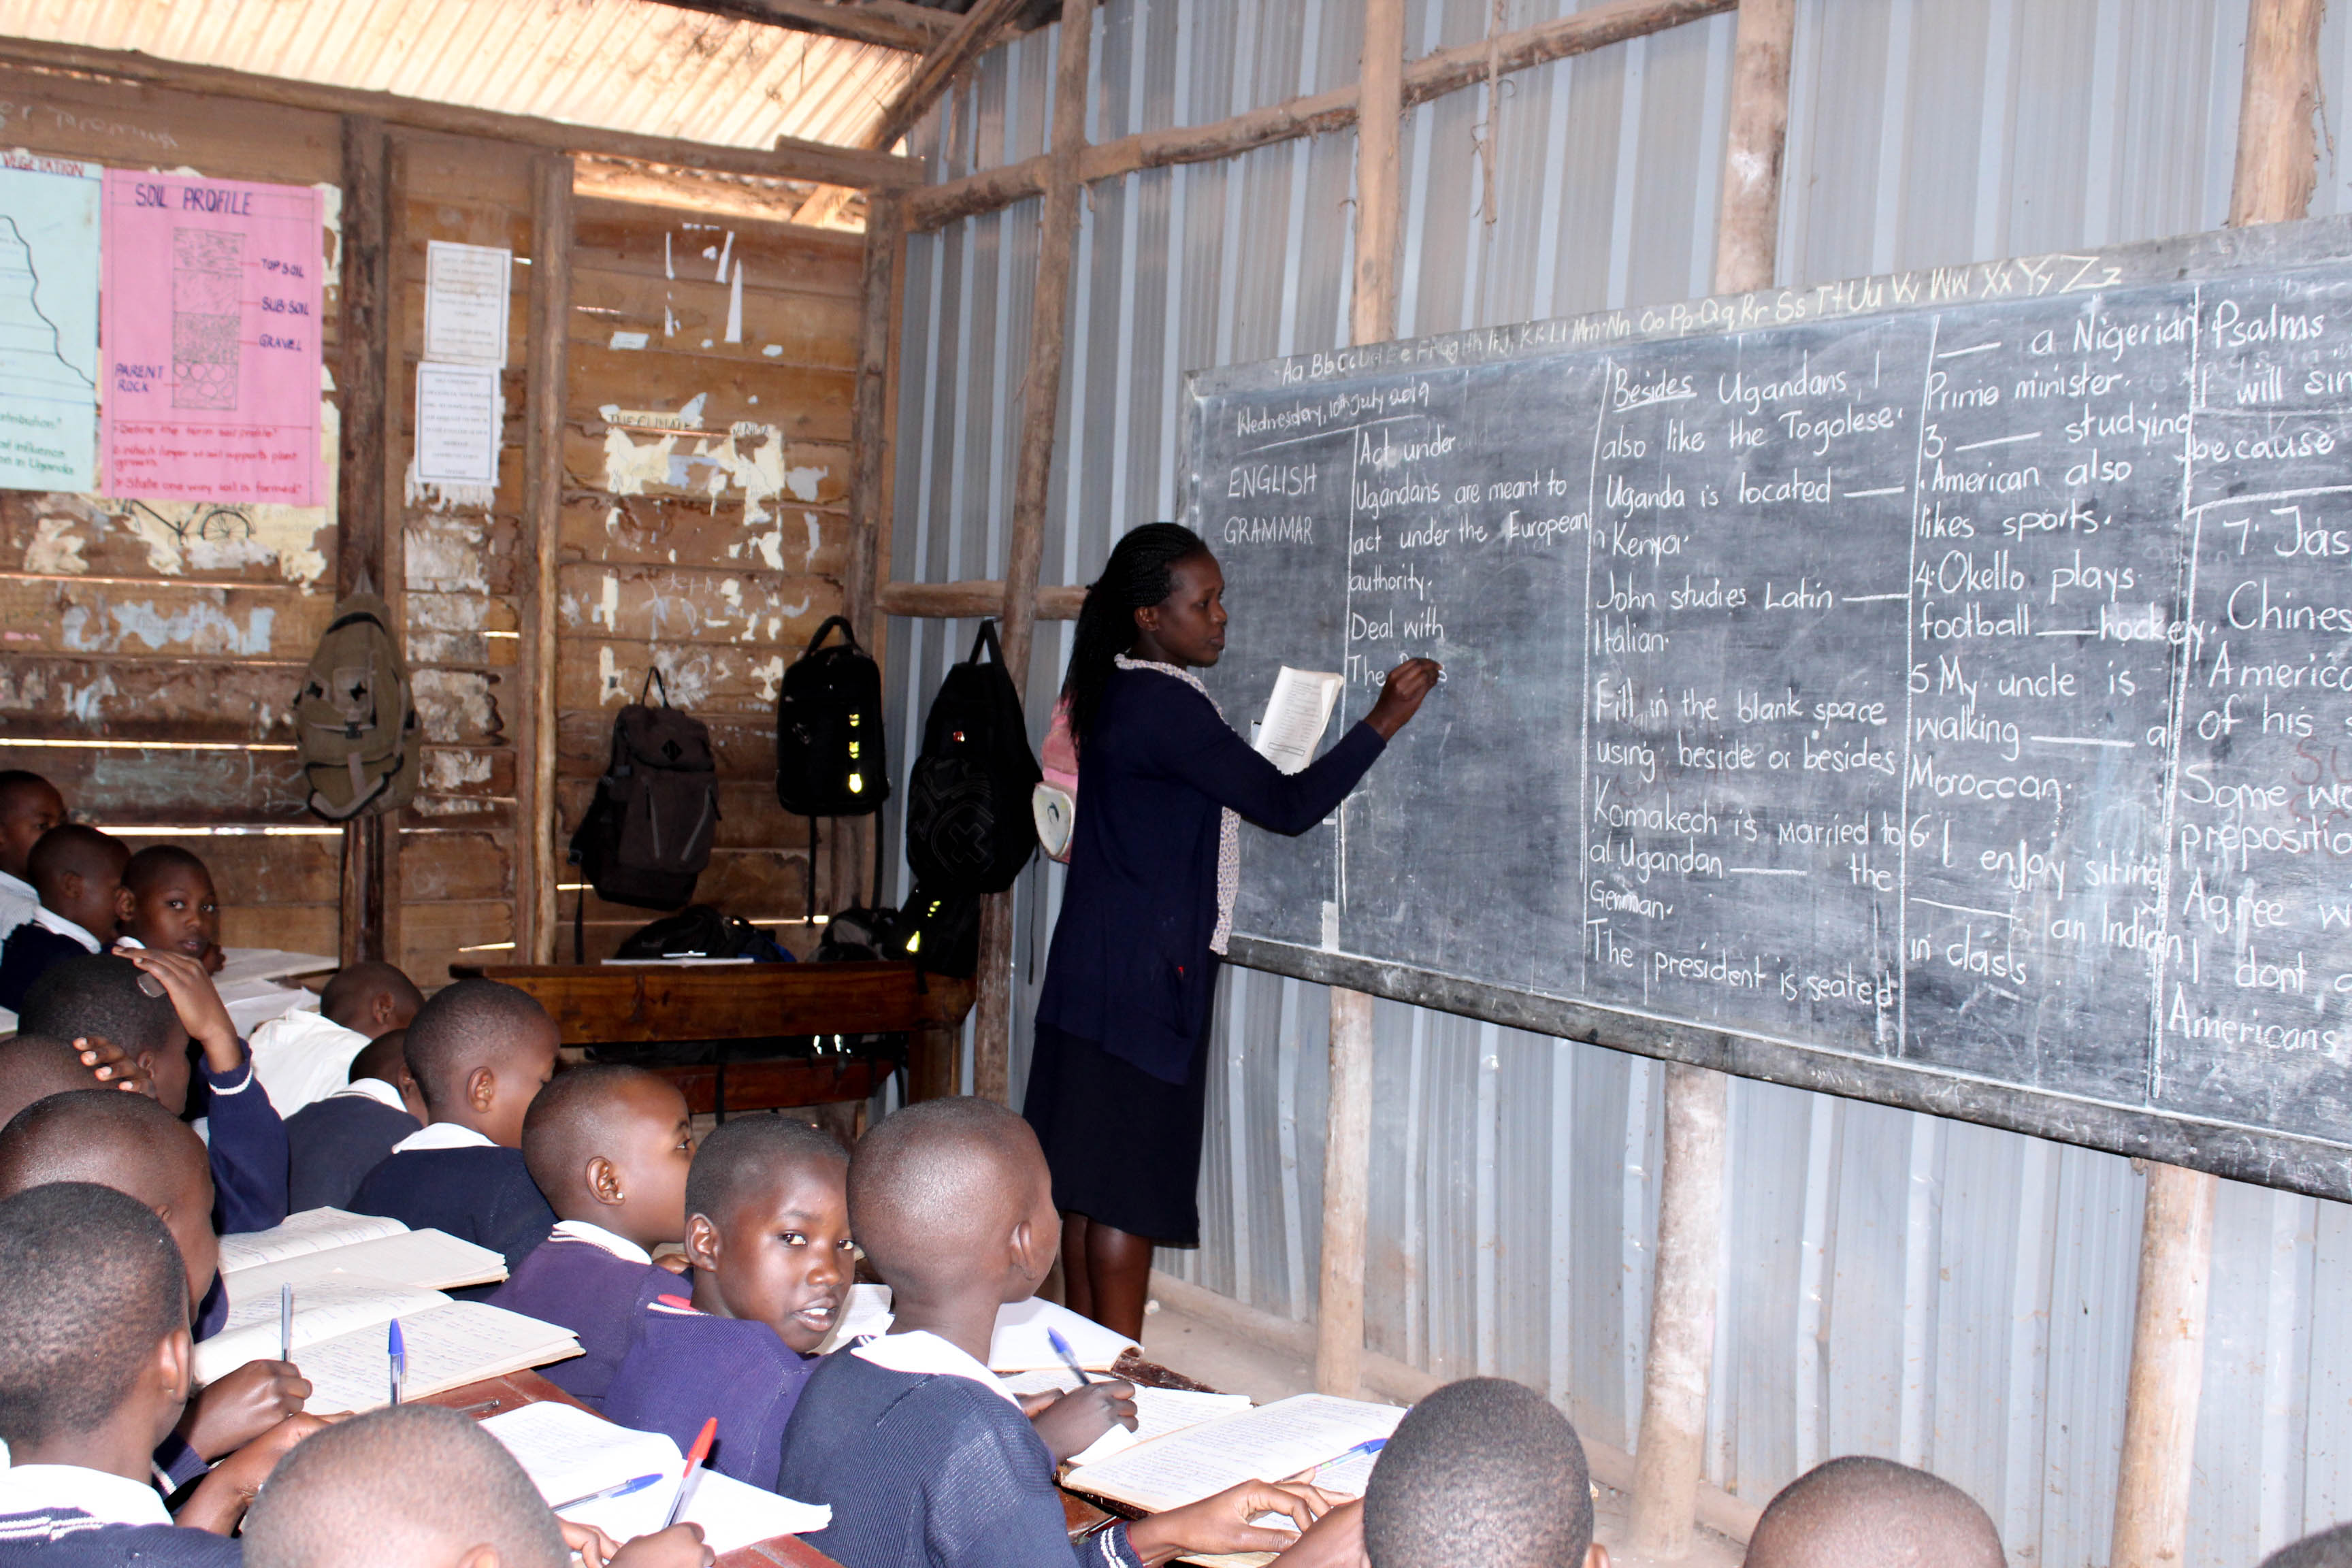 VEGETATION
SOIL PROFILE
TOP SOIL
SUB SOIL
GRAVEL
PARENT
ROCK
Aa Bb Cc Dd Ee Ff Gg Hh Ii Jj Kk Ll Mm Nn Oo Pp Qq Rr Ss Tt Uu Vv Ww Xx Yy Zz
Wednesday, 10th July 2019
ENGLISH
GRAMMAR
Act under
Ugandans are meant to
act under the European
authority.
Deal with
The
Besides Ugandans, I
also like the Togolese.
Uganda is located
Kenya.
John studies Latin
Italian.
Fill in the blank space
using beside or besides
Komakech is married to
a Ugandan the
German.
The president is seated
a Nigerian
Prime minister.
3. studying
American also
likes sports.
4. Okello plays
football hockey.
5 My uncle is
walking a
Moroccan.
6. I enjoy siting
an Indian
in class
Psalms
I will sin
because
7. Jas
Chines
America
of his
Some
prepositio
Agree w
I dont
Americans